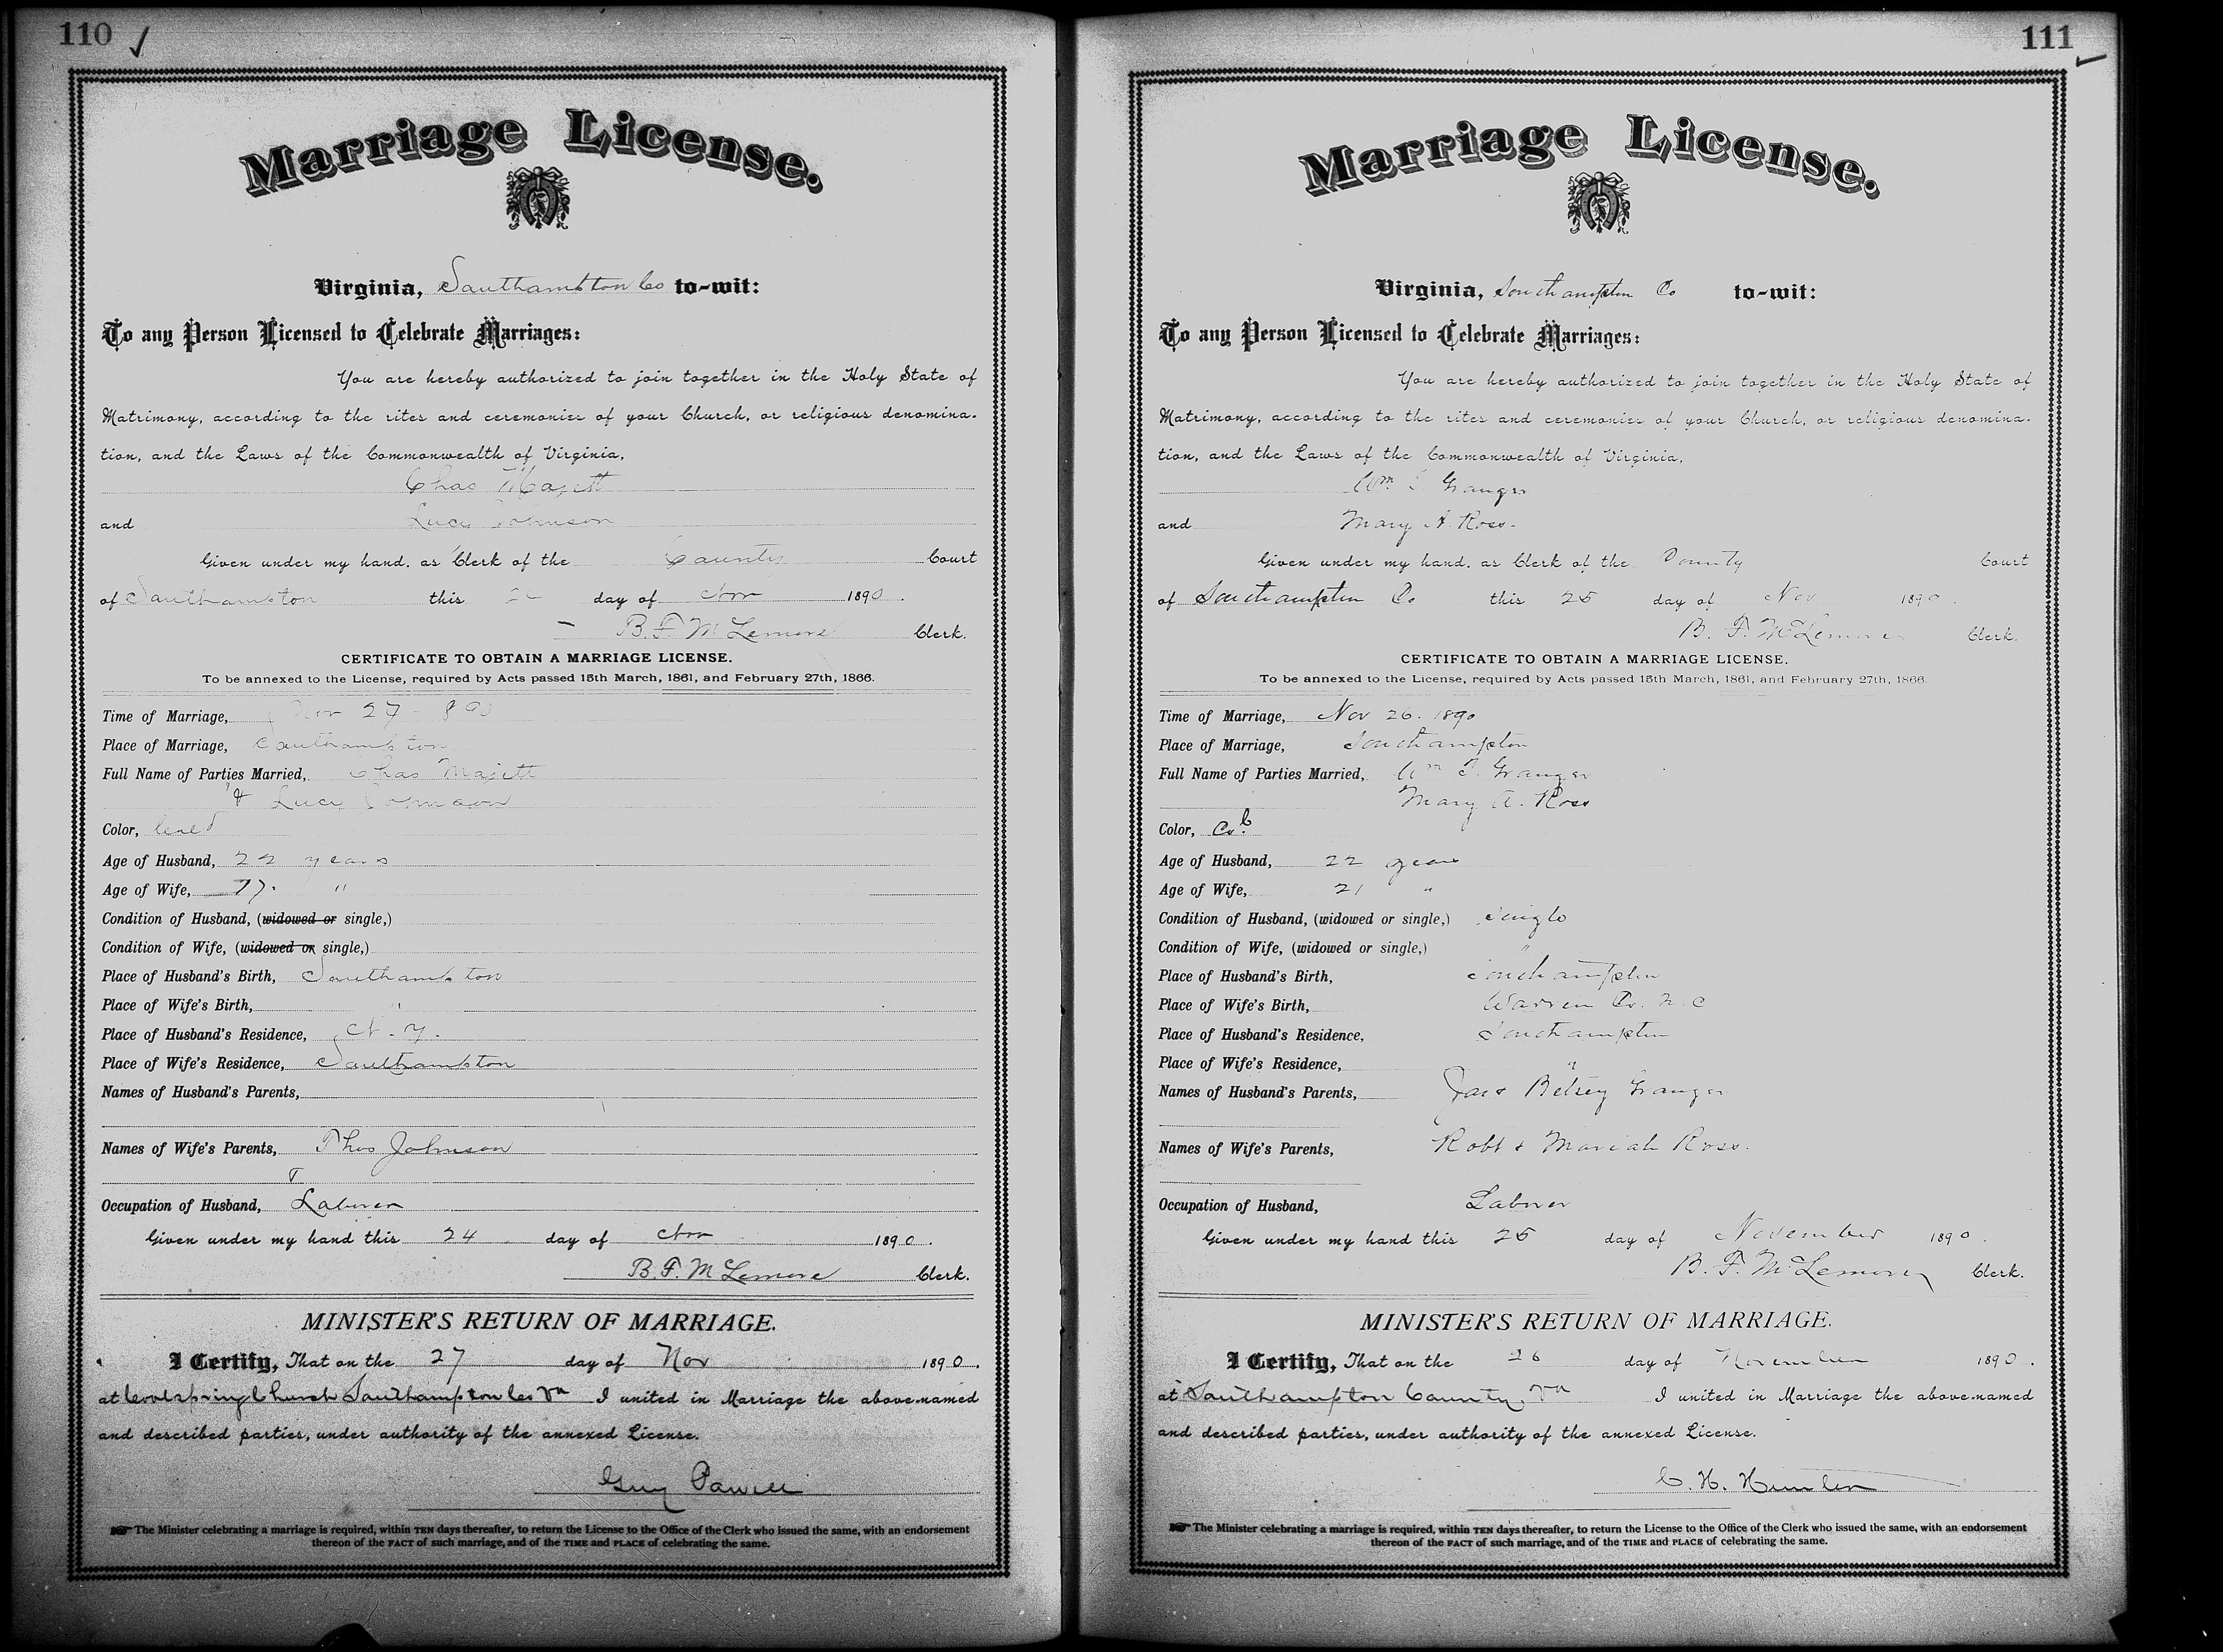 110
Marriage License.
Virginia, Southampton Co to-wit:
To any Person Licensed to Celebrate Marriages:
You are hereby authorized to join together in the Holy State of
Matrimony, according to the rites and ceremonies of your Church, or religious denomina-
tion, and the Laws of the Commonwealth of Virginia,
Chas Majett
and Lucy Johnson
Given under my hand, as Clerk of the County Court
of Southampton this day of Nov 1890.
B. F. McLemore Clerk.
CERTIFICATE TO OBTAIN A MARRIAGE LICENSE.
To be annexed to the License, required by Acts passed 15th March, 1861, and February 27th, 1866.
Time of Marriage, Nov 27 1890
Place of Marriage, Southampton
Full Name of Parties Married, Chas Majett
& Lucy Johnson
Color, Col'd
Age of Husband, 22 years
Age of Wife, 17. "
Condition of Husband, (widowed or single,)
Condition of Wife, (widowed or single,)
Place of Husband's Birth, Southampton
Place of Wife's Birth, "
Place of Husband's Residence, N. Y.
Place of Wife's Residence, Southampton
Names of Husband's Parents,
Names of Wife's Parents, Thos Johnson
Occupation of Husband, Laborer
Given under my hand this 24 day of Nov 1890.
B. F. McLemore Clerk.
MINISTER'S RETURN OF MARRIAGE.
I Certify, That on the 27 day of Nov 1890.
at Coolspring Church Southampton Co Va I united in Marriage the above-named
and described parties, under authority of the annexed License.
Guy Powell
The Minister celebrating a marriage is required, within TEN days thereafter, to return the License to the Office of the Clerk who issued the same, with an endorsement
thereon of the FACT of such marriage, and of the TIME and PLACE of celebrating the same.
111
Marriage License.
Virginia, Southampton Co to-wit:
To any Person Licensed to Celebrate Marriages:
You are hereby authorized to join together in the Holy State of
Matrimony, according to the rites and ceremonies of your Church, or religious denomina-
tion, and the Laws of the Commonwealth of Virginia,
Wm Granger
and Mary A. Ross.
Given under my hand, as Clerk of the County Court
of Southampton Co this 25 day of Nov 1890.
B. F. McLemore Clerk.
CERTIFICATE TO OBTAIN A MARRIAGE LICENSE.
To be annexed to the License, required by Acts passed 15th March, 1861, and February 27th, 1866.
Time of Marriage, Nov 26. 1890
Place of Marriage, Southampton
Full Name of Parties Married, Wm Granger
Mary A. Ross
Color, Col.
Age of Husband, 22 years
Age of Wife, 21 "
Condition of Husband, (widowed or single,) Single
Condition of Wife, (widowed or single,) "
Place of Husband's Birth, Southampton
Place of Wife's Birth, Warren Co. N. C
Place of Husband's Residence, Southampton
Place of Wife's Residence, "
Names of Husband's Parents, Jas & Betsey Granger
Names of Wife's Parents, Robt & Mariah Ross.
Occupation of Husband, Laborer
Given under my hand this 25 day of November 1890.
B. F. McLemore Clerk.
MINISTER'S RETURN OF MARRIAGE.
I Certify, That on the 26 day of November 1890.
at Southampton County, Va I united in Marriage the above-named
and described parties, under authority of the annexed License.
C. H.
The Minister celebrating a marriage is required, within TEN days thereafter, to return the License to the Office of the Clerk who issued the same, with an endorsement
thereon of the FACT of such marriage, and of the TIME and PLACE of celebrating the same.